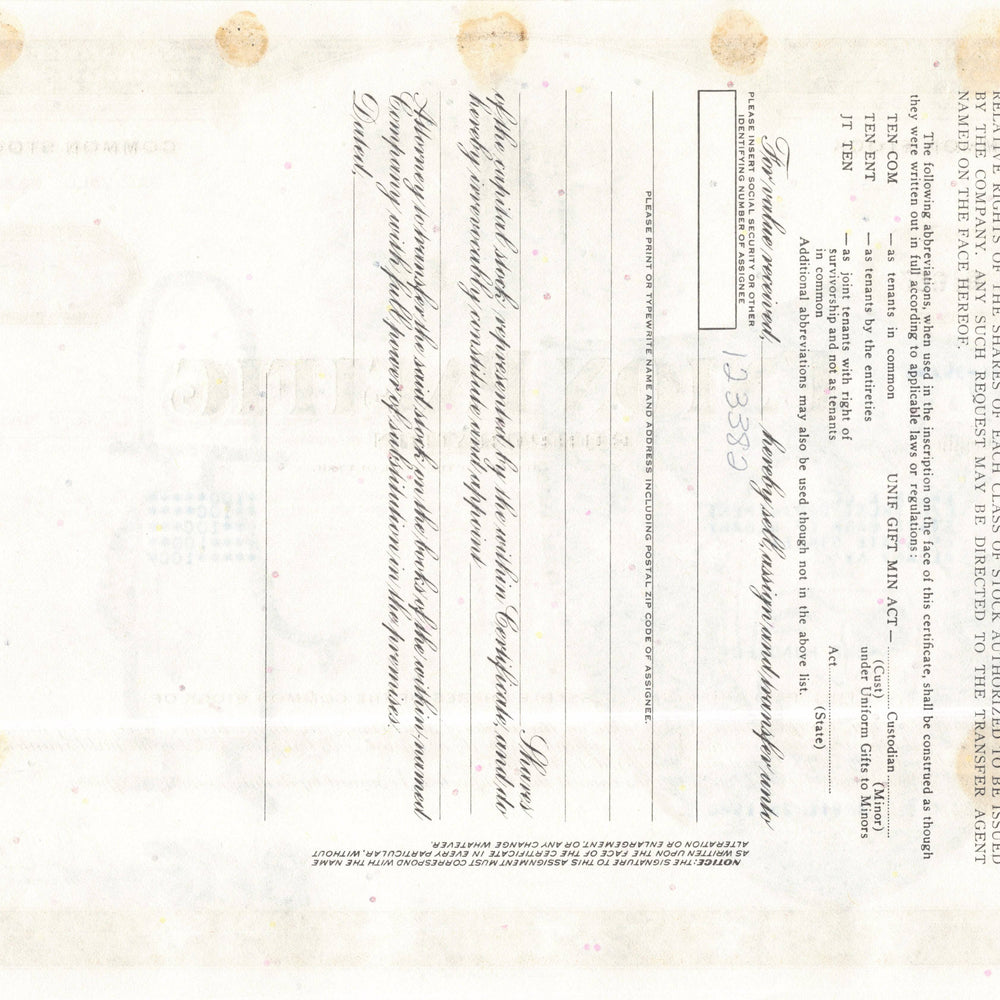 RELATIVE RIGHTS OF THE SHARES OF EACH CLASS OF STOCK AUTHORIZED TO BE ISSUED
BY THE COMPANY. ANY SUCH REQUEST MAY BE DIRECTED TO THE TRANSFER AGENT
NAMED ON THE FACE HEREOF.
The following abbreviations, when used in the inscription on the face of this certificate, shall be construed as though
they were written out in full according to applicable laws or regulations:
TEN COM — as tenants in common UNIF GIFT MIN ACT — .......... Custodian ..........
(Cust) (Minor)
TEN ENT — as tenants by the entireties under Uniform Gifts to Minors
JT TEN — as joint tenants with right of
survivorship and not as tenants Act ..............................
in common (State)
Additional abbreviations may also be used though not in the above list.
For value received, hereby sell, assign and transfer unto
PLEASE INSERT SOCIAL SECURITY OR OTHER
IDENTIFYING NUMBER OF ASSIGNEE
123382
PLEASE PRINT OR TYPEWRITE NAME AND ADDRESS INCLUDING POSTAL ZIP CODE OF ASSIGNEE.
Shares
of the capital stock represented by the within Certificate, and do
hereby irrevocably constitute and appoint
Attorney to transfer the said stock on the books of the within-named
Company with full power of substitution in the premises.
Dated,
NOTICE: THE SIGNATURE TO THIS ASSIGNMENT MUST CORRESPOND WITH THE NAME
AS WRITTEN UPON THE FACE OF THE CERTIFICATE IN EVERY PARTICULAR, WITHOUT
ALTERATION OR ENLARGEMENT, OR ANY CHANGE WHATEVER.